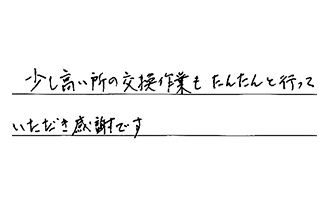 少し高い所の交換作業もたんたんと行って
いただき感謝です